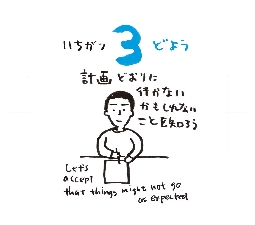 いちがつ 3 どよう
計画どおりに
行かない
かもしれない
ことを知ろう
Let's
accept
that things might not go
as expected